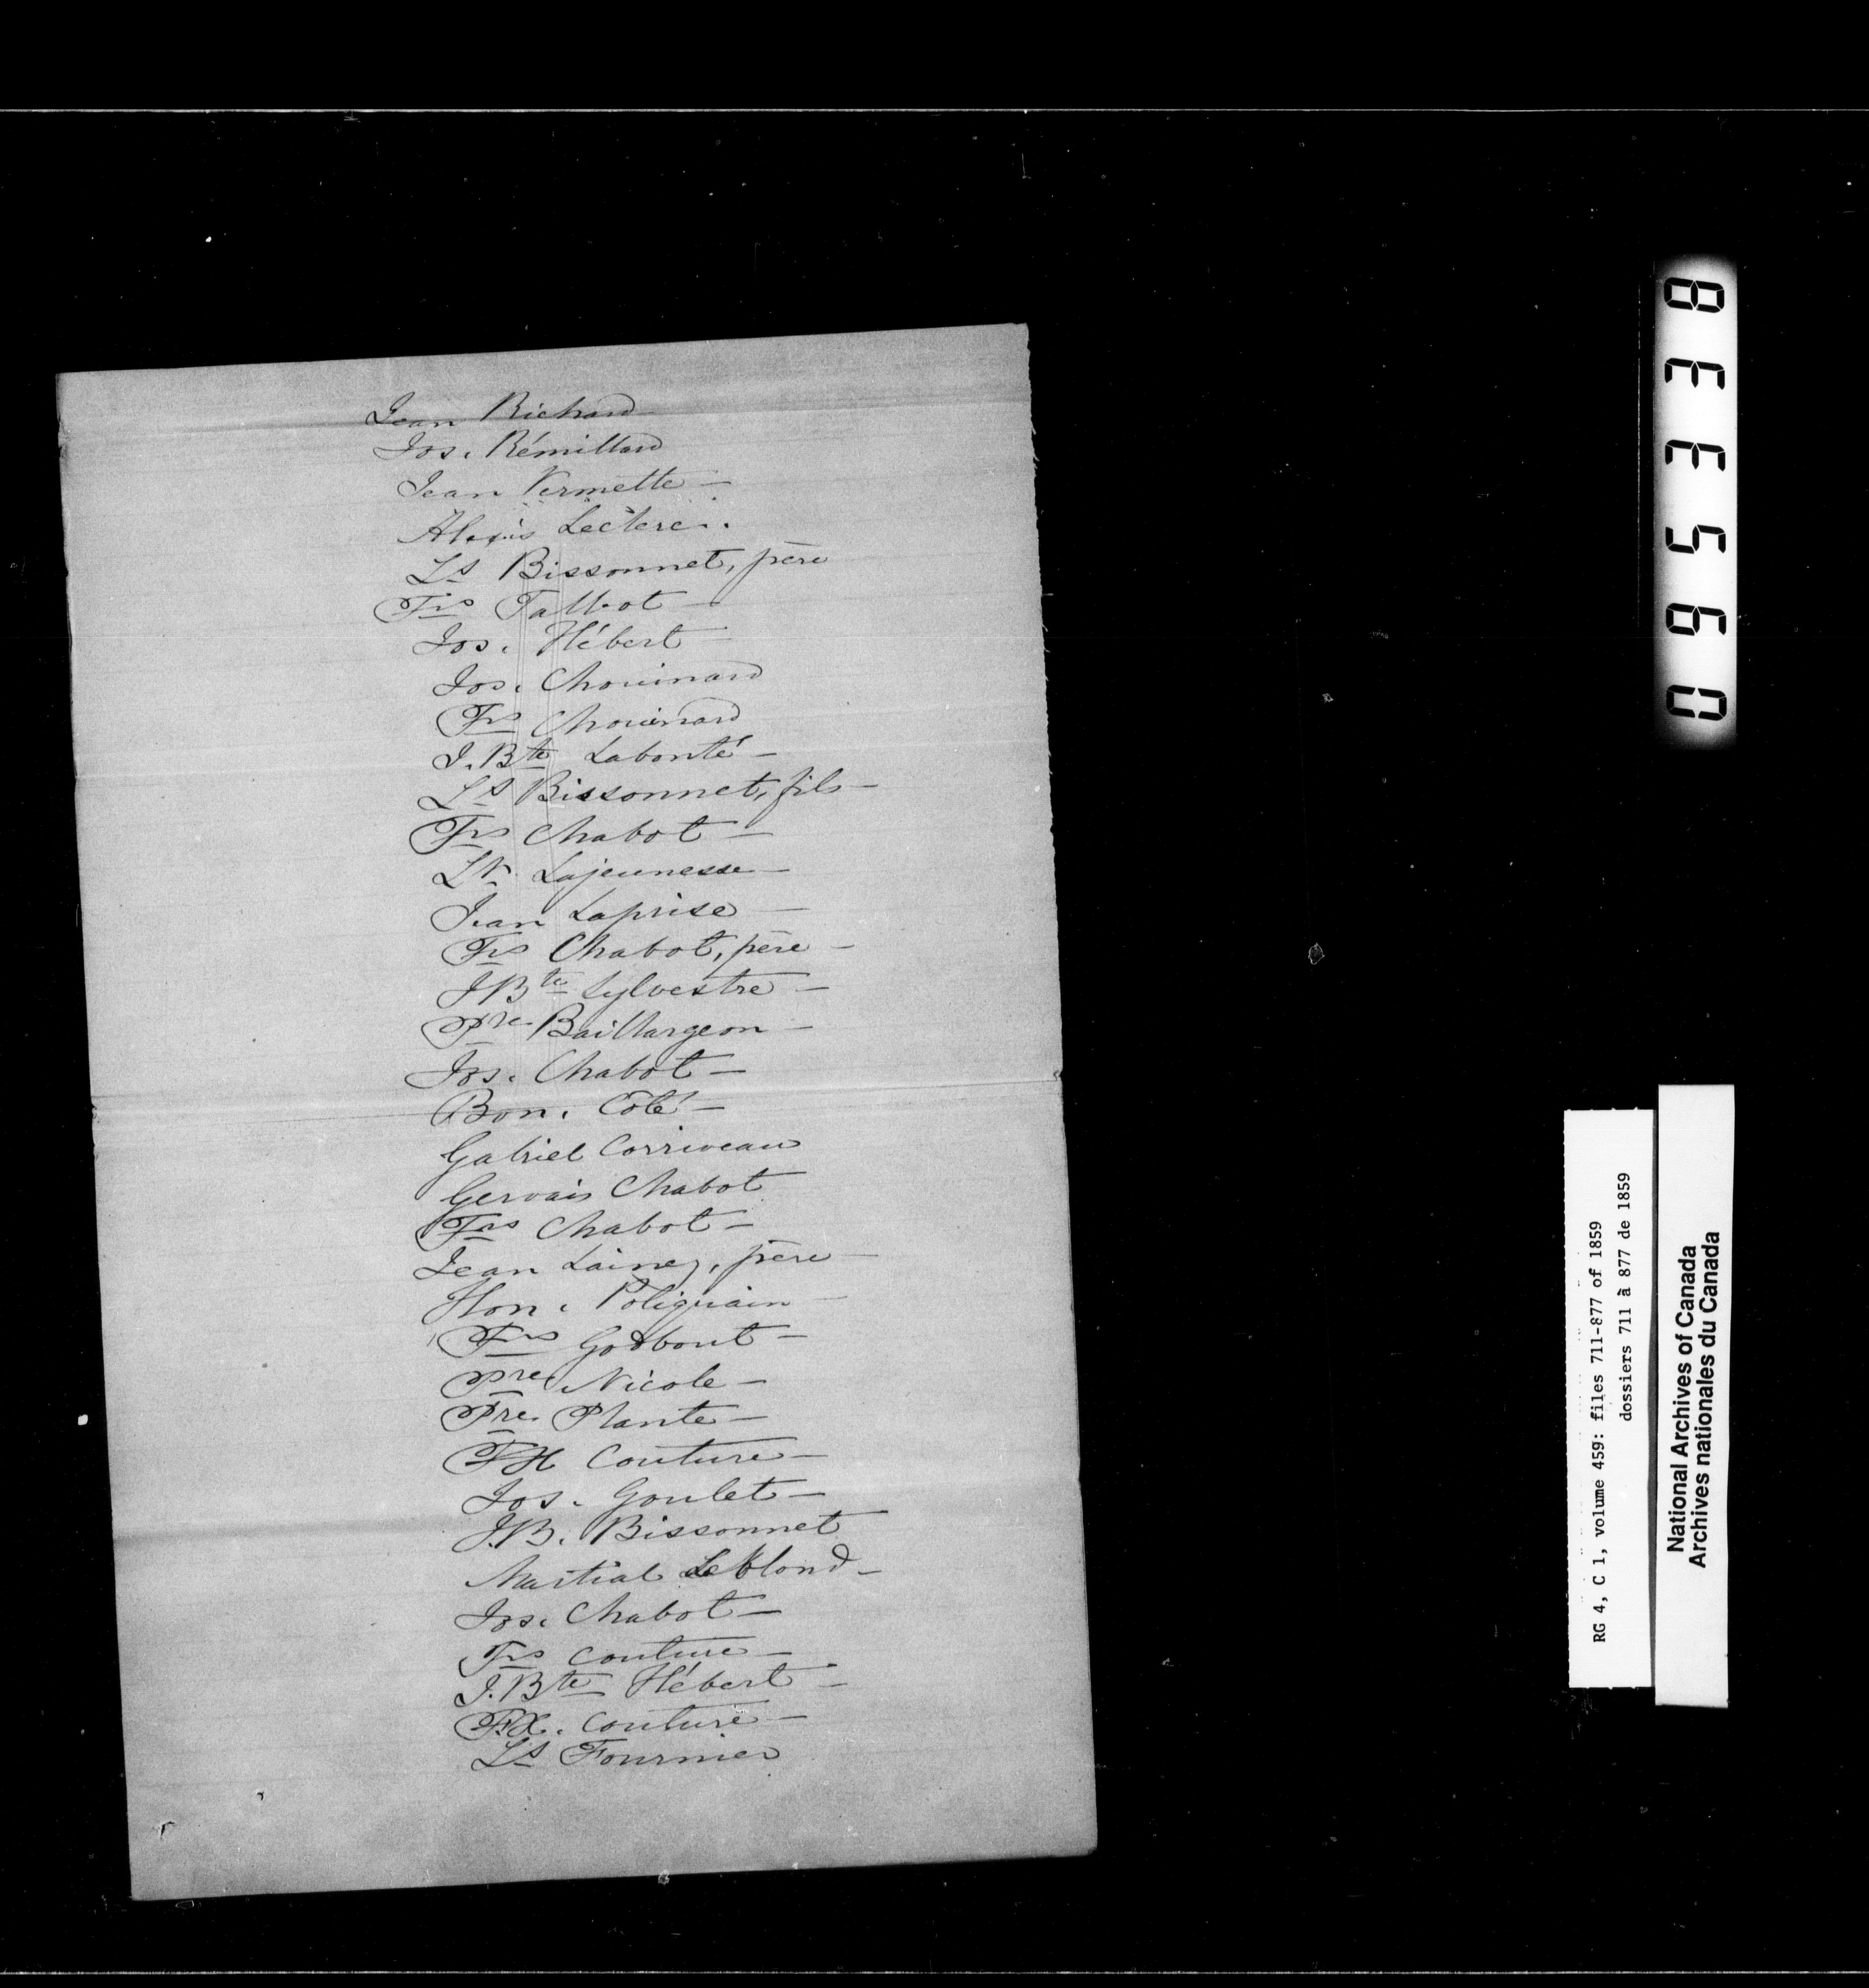 Jean Richard
Jos. Rémillard
Jean Vermette —
Alexis Leclerc.
Ls Bissonnet, père
Frs Talbot —
Jos. Hébert
Jos. Chouinard
Frs Chouinard
J. Bte Labonté —
Ls Bissonnet, fils —
Frs Chabot —
Lajeunesse —
Jean Laprise —
Frs Chabot, père —
JBte Sylvestre —
Pre Baillargeon —
Jos. Chabot —
Bon. Coté —
Gabriel Corriveau
Gervais Chabot
Frs Chabot —
Jean Lainez, père —
Hon. Poliquain —
Frs Godbout —
Pre Nicole —
Pre Plante —
FH Couture —
Jos. Goulet —
J.B. Bissonnet
Martial Leblond —
Jos. Chabot —
Frs Couture —
J. Bte Hébert —
F.X. Couture —
Ls Fournier
095338
RG 4, C 1, volume 459: files 711-877 of 1859
dossiers 711 à 877 de 1859
National Archives of Canada
Archives nationales du Canada